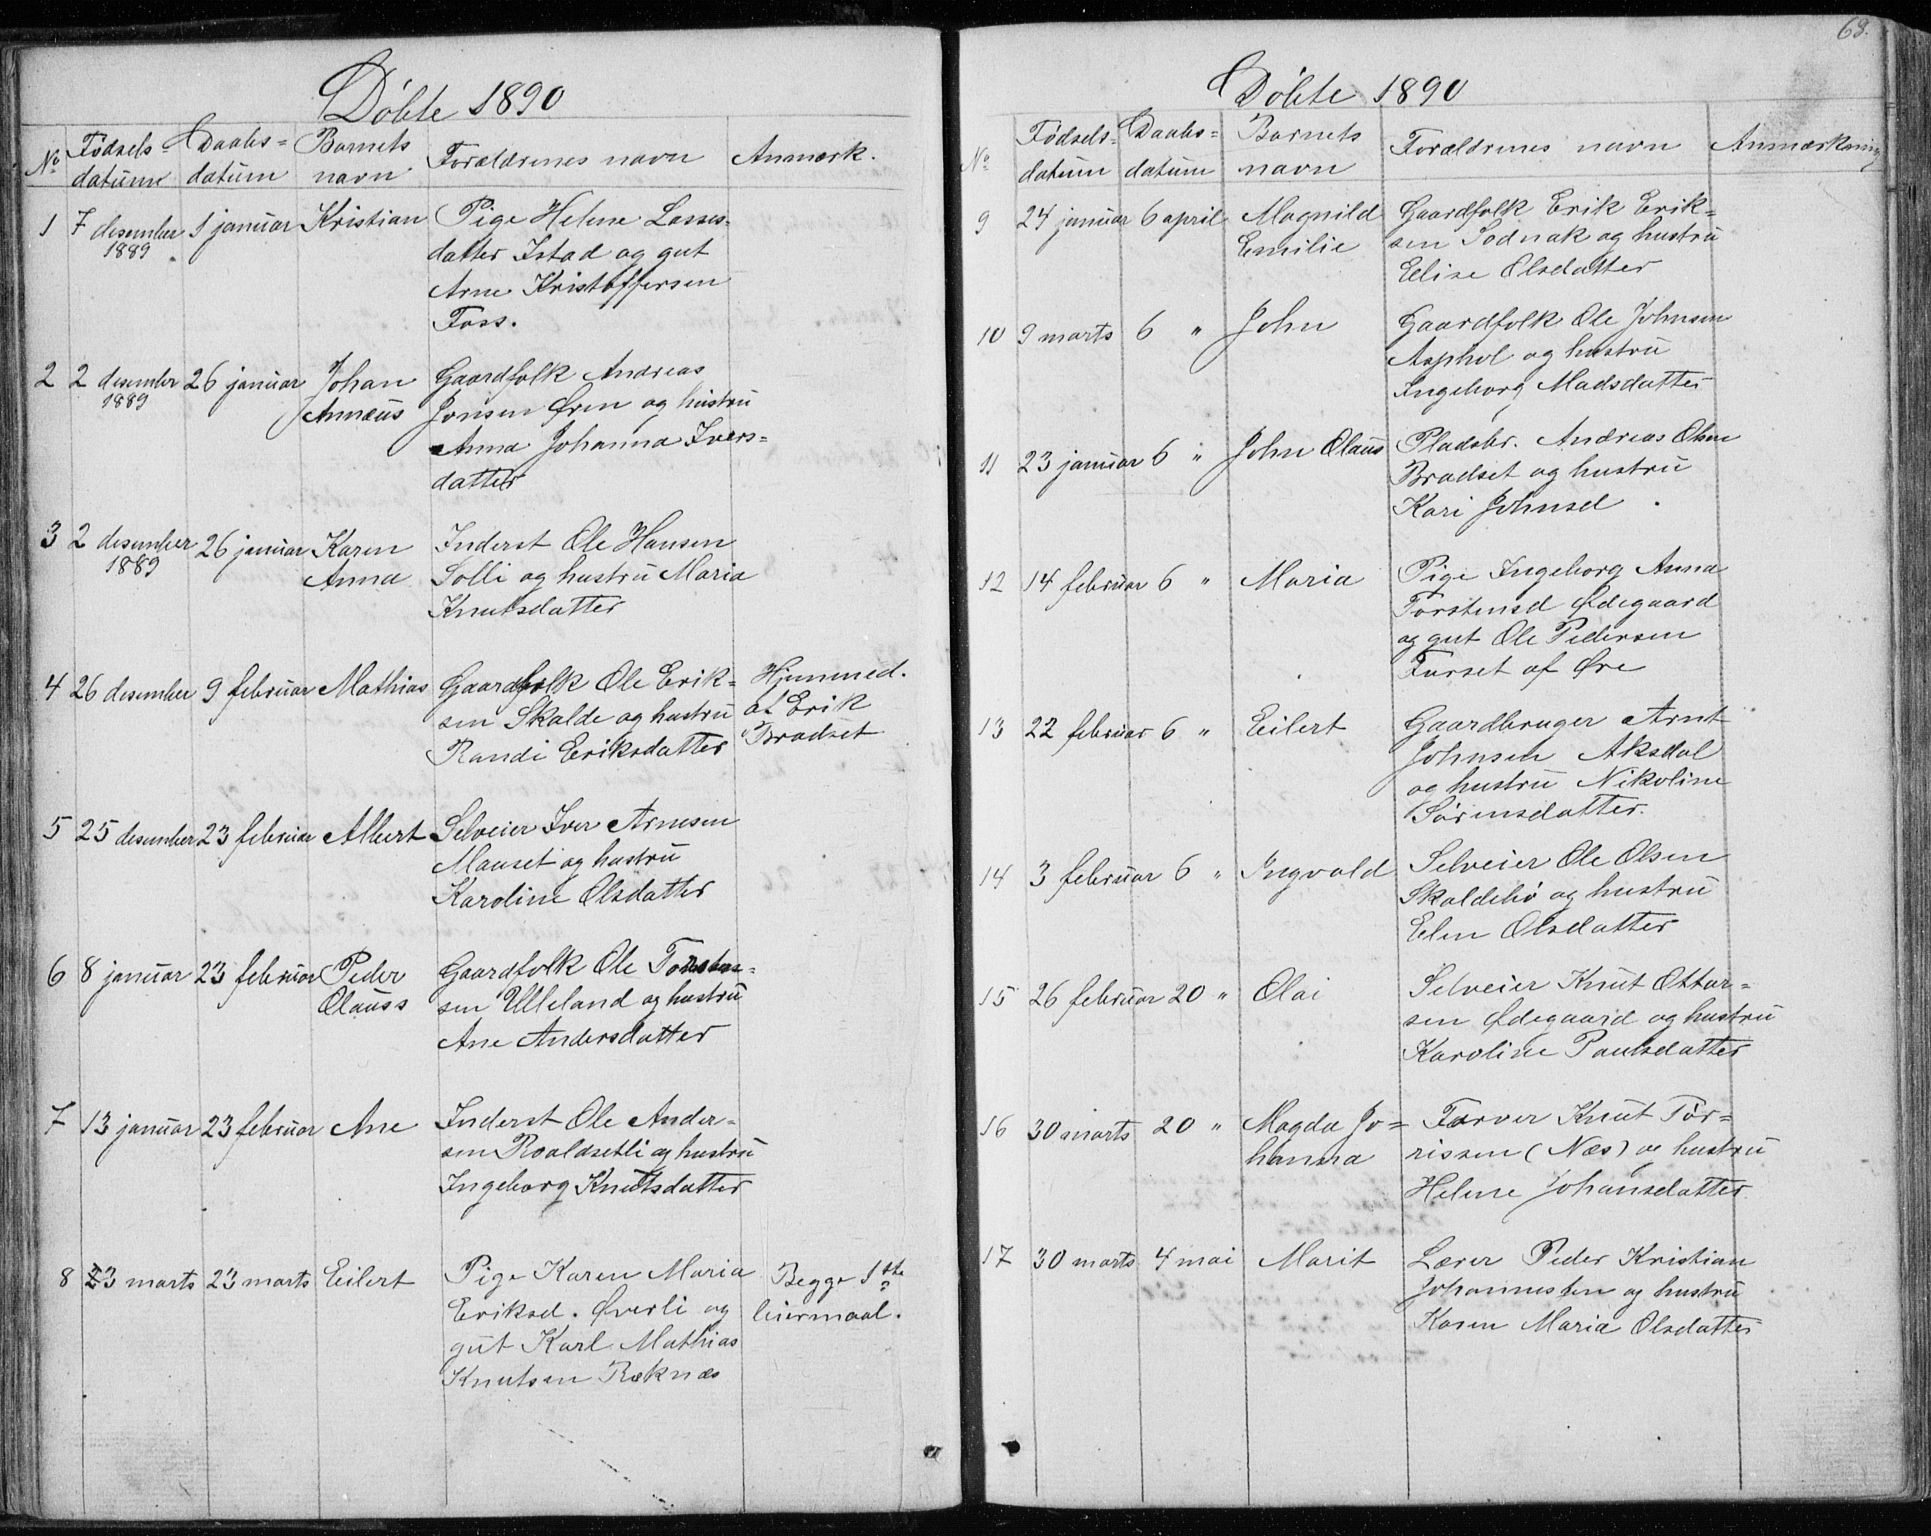 Döbte 1890
No Fødsels- datum Daabs- datum Barnets navn Forældrenes navn Anmærk.
1 7 desember 1889 1 januar Kristian Pige Helene Lasses-
datter Istad og gut
Arne Kristoffersen
Foss.
2 2 desember 1889 26 januar Johan Annæus Gaardfolk Andreas
Jonsen Øren og hustru
Anna Johanna Ivers-
datter
3 2 desember 1889 26 januar Karen Anna Inderst Ole Hansen
Solli og hustru Maria
Knutsdatter
4 26 desember 9 februar Mathias Gaardfolk Ole Erik- Hjemmed.
sen Skalde og hustru af Erik
Randi Eriksdatter Bradset
5 25 desember 23 februar Albert Selveier Iver Arnesen
Mauset og hustru
Karoline Olsdatter
6 8 januar 23 februar Peder Olauss Gaardfolk Ole Torsten-
sen Ulleland og hustru
Ane Andersdatter
7 13 januar 23 februar Ane Inderst Ole Ander-
sen Roaldsetli og hustru
Ingeborg Knutsdatter
8 23 marts 23 marts Eilert Pige Karen Maria Begge 1ste
Eriksd. Øverli og leiermaal.
gut Karl Mathias
Knutsen Ræknæs
68.
Döbte 1890
No Fødsels- datum Daabs- datum Barnets navn Forældrenes navn Anmærkning
9 24 januar 6 april Magnild Emilie Gaardfolk Erik Erik-
sen Sodnak og hustru
Elise Olsdatter
10 9 marts 6 " John Gaardfolk Ole Johnsen
Asphol og hustru
Ingeborg Madsdatter
11 23 januar 6 " John Olaus Pladsbr. Andreas Olsen
Bradset og hustru
Kari Johnsd
12 14 februar 6 " Maria Pige Ingeborg Anna
Torstensd Ødegaard
og gut Ole Pedersen
Furset af Øre
13 22 februar 6 " Eilert Gaardbruger Arnt
Johnsen Aksdal
og hustru Nikoline
Sørensdatter.
14 3 februar 6 " Ingvald Selveier Ole Olsen
Skaldebö og hustru
Elen Olsdatter
15 26 februar 20 " Olai Selveier Knut Ottar-
sen Ødegaard og hustru
Karoline Paulsdatter
16 30 marts 20 " Magda Jo- Farver Knut Tör-
hanna rissen (Næs) og hustru
Helene Johansdatter
17 30 marts 4 mai Marit Lærer Peder Kristian
Johannessen og hustru
Karen Maria Olsdatter